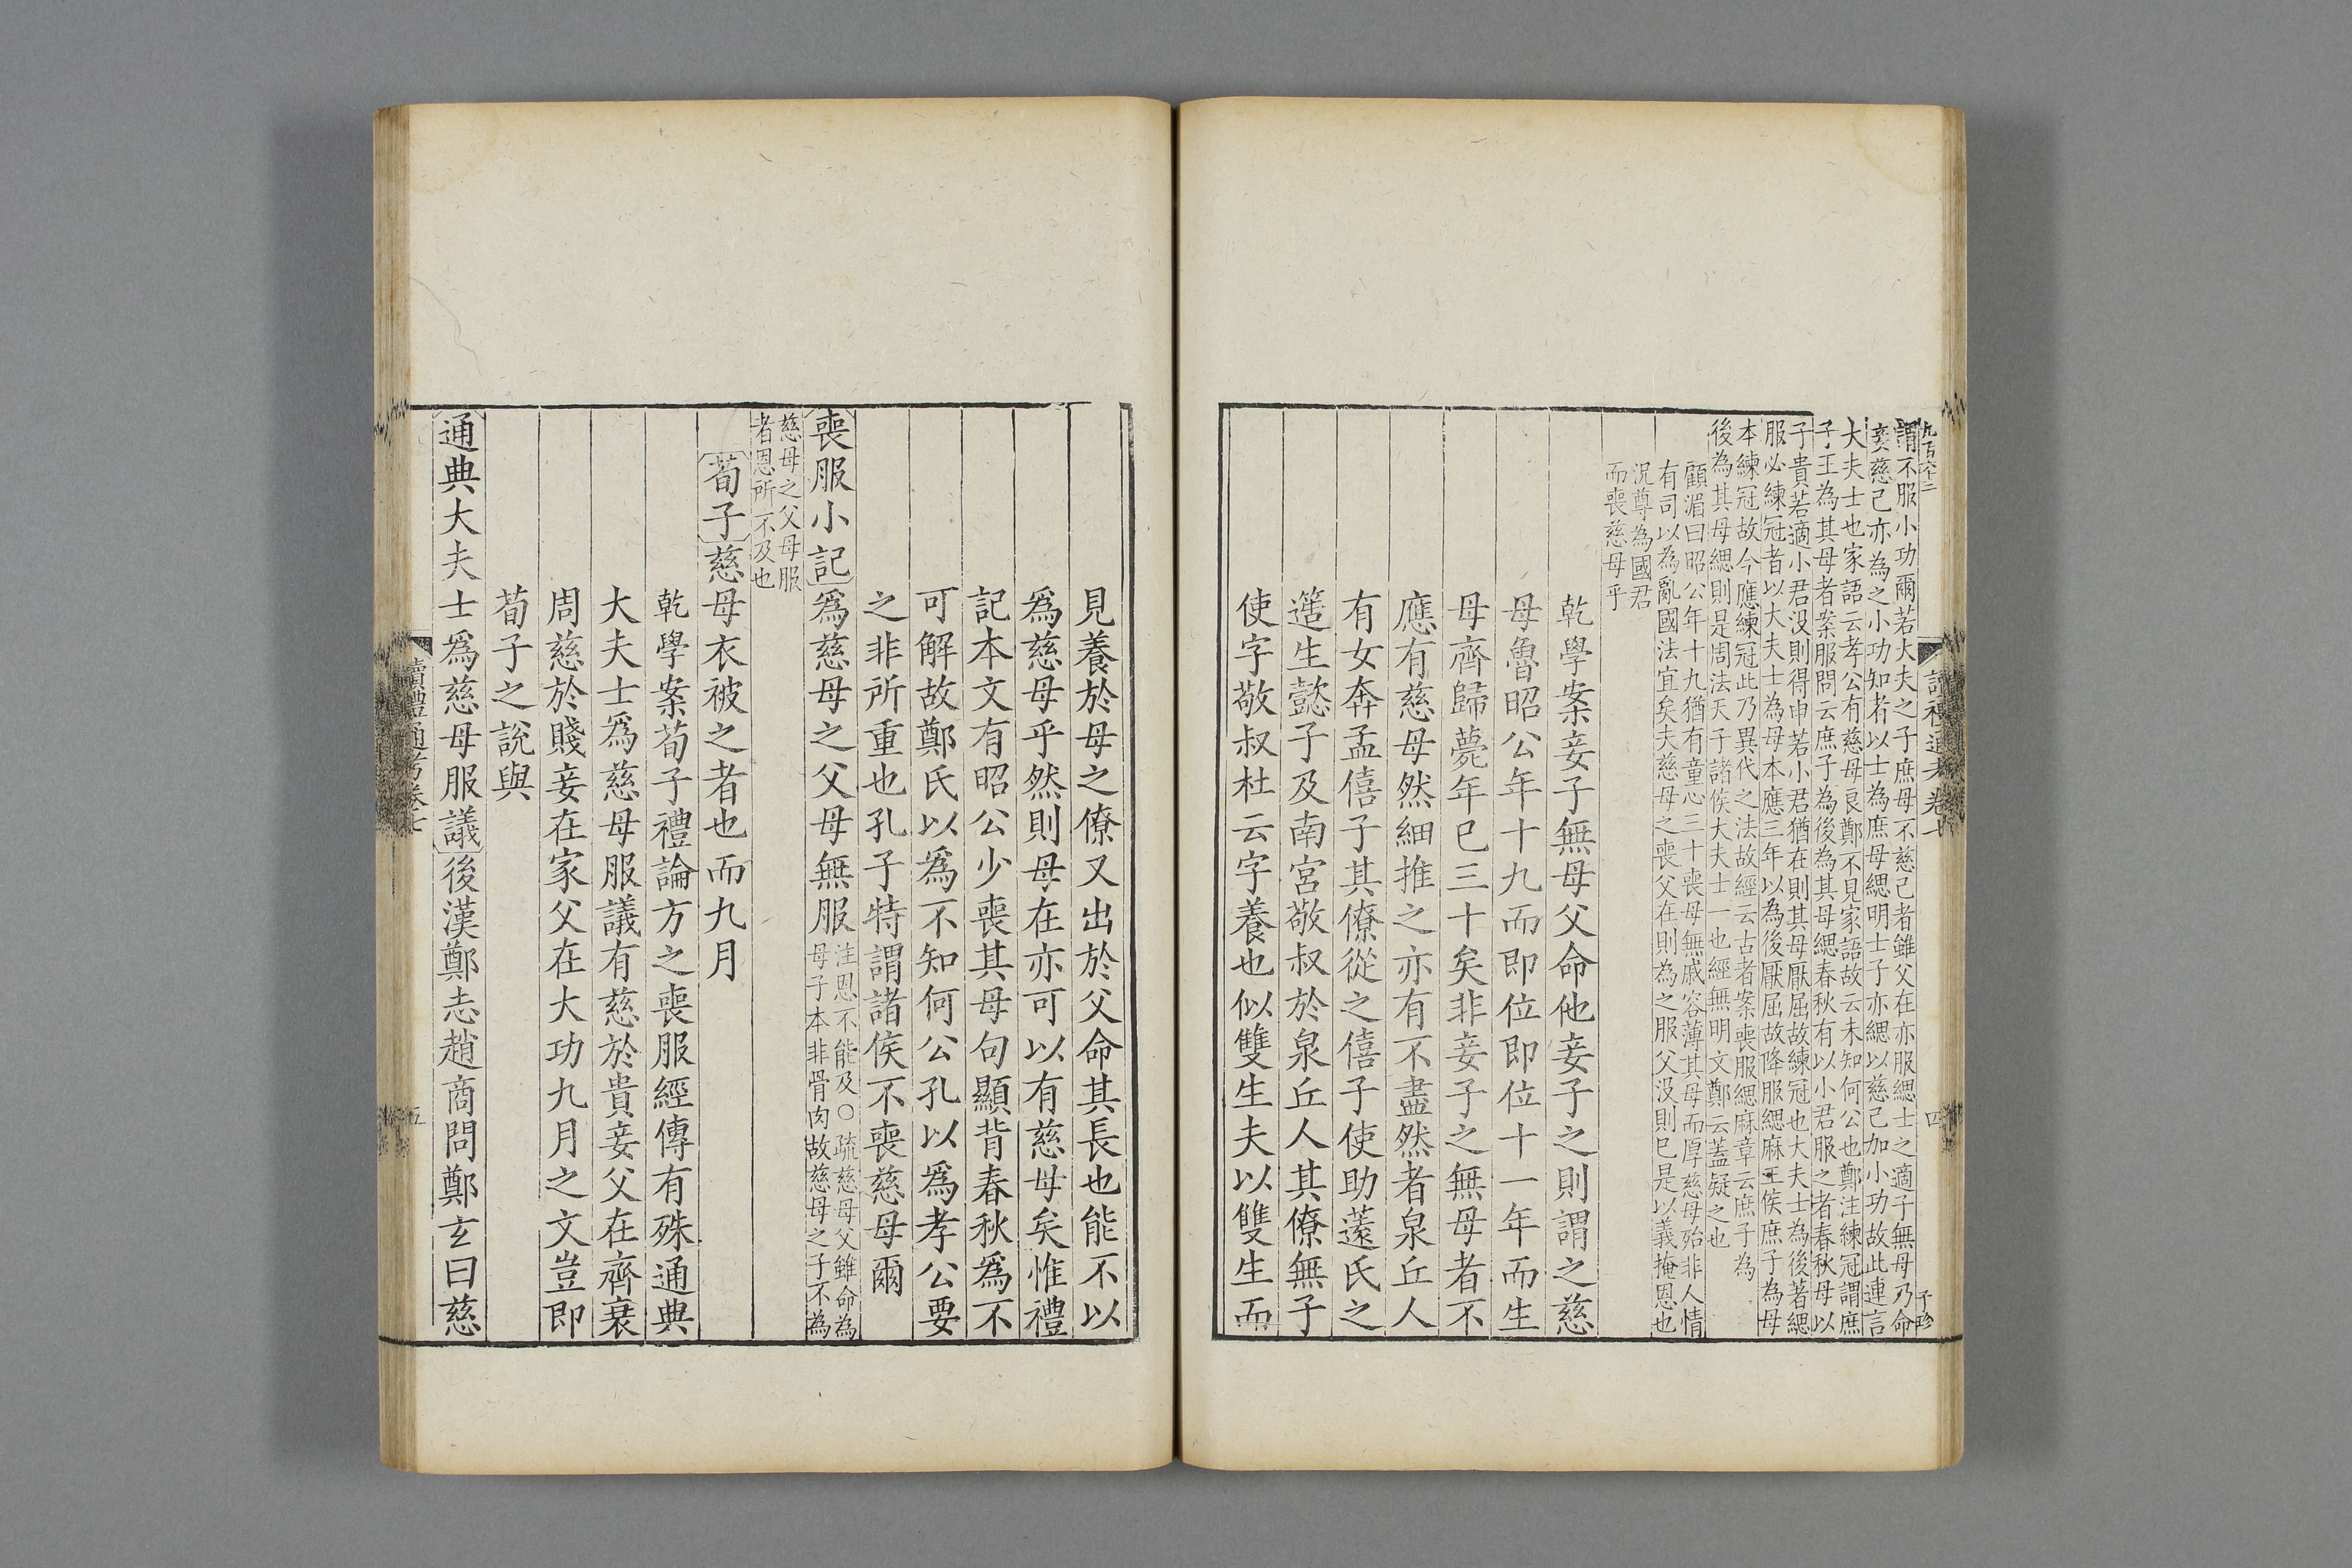 九百六十二
謂不服小功爾若大夫之子庶母不慈己者雖父在亦服緦士之適子無母乃命
妾慈己亦為之小功知者以士為庶母緦明士子亦緦以慈己加小功故此連言
大夫士也家語云孝公有慈母良鄭不見家語故云未知何公也鄭注練冠謂庶
子王為其母者案服問云庶子為後為其母緦春秋有以小君服之者春秋母以
子貴若適小君沒則得申若小君猶在則其母厭屈故練冠也大夫士為後著緦
服必練冠者以大夫士為母本應三年以為後厭屈故降服緦麻王侯庶子為母
本練冠故今應練冠此乃異代之法故經云古者案喪服緦麻章云庶子為
後為其母緦則是周法天子諸侯大夫士一也經無明文鄭云蓋疑之也
顧湄曰昭公年十九猶有童心三十喪母無慼容薄其母而厚慈母殆非人情
有司以為亂國法宜矣夫慈母之喪父在則為之服父沒則已是以義掩恩也
況尊為國君
而喪慈母乎
乾學案妾子無母父命他妾子之則謂之慈
母魯昭公年十九而即位即位十一年而生
母齊歸薨年已三十矣非妾子之無母者不
應有慈母然細推之亦有不盡然者泉丘人
有女奔孟僖子其僚從之僖子使助薳氏之
簉生懿子及南宮敬叔於泉丘人其僚無子
使字敬叔杜云字養也似雙生夫以雙生而
讀禮通考卷七
四
子珍
見養於母之僚又出於父命其長也能不以
爲慈母乎然則母在亦可以有慈母矣惟禮
記本文有昭公少喪其母句顯背春秋爲不
可解故鄭氏以爲不知何公孔以爲孝公要
之非所重也孔子特謂諸侯不喪慈母爾
喪服小記爲慈母之父母無服
注恩不能及○疏慈母父雖命為
母子本非骨肉故慈母之子不為
慈母之父母服
者恩所不及也
荀子慈母衣被之者也而九月
乾學案荀子禮論方之喪服經傳有殊通典
大夫士爲慈母服議有慈於貴妾父在齊衰
周慈於賤妾在家父在大功九月之文豈即
荀子之說與
通典大夫士爲慈母服議後漢鄭志趙商問鄭玄曰慈
讀禮通考卷七
五